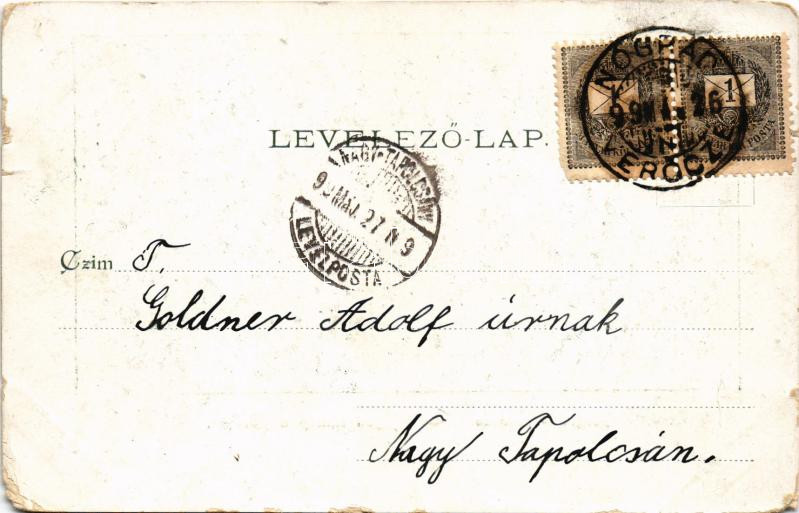 1 1
NÓGRÁD
99 MÁJ. 26
VERŐCZE
LEVELEZŐ-LAP.
NAGY-TAPOLCSÁNY
99 MÁJ. 27 N 9
LEVÉLPOSTA
Czim T.
Goldner Adolf úrnak
Nagy Tapolcsán.